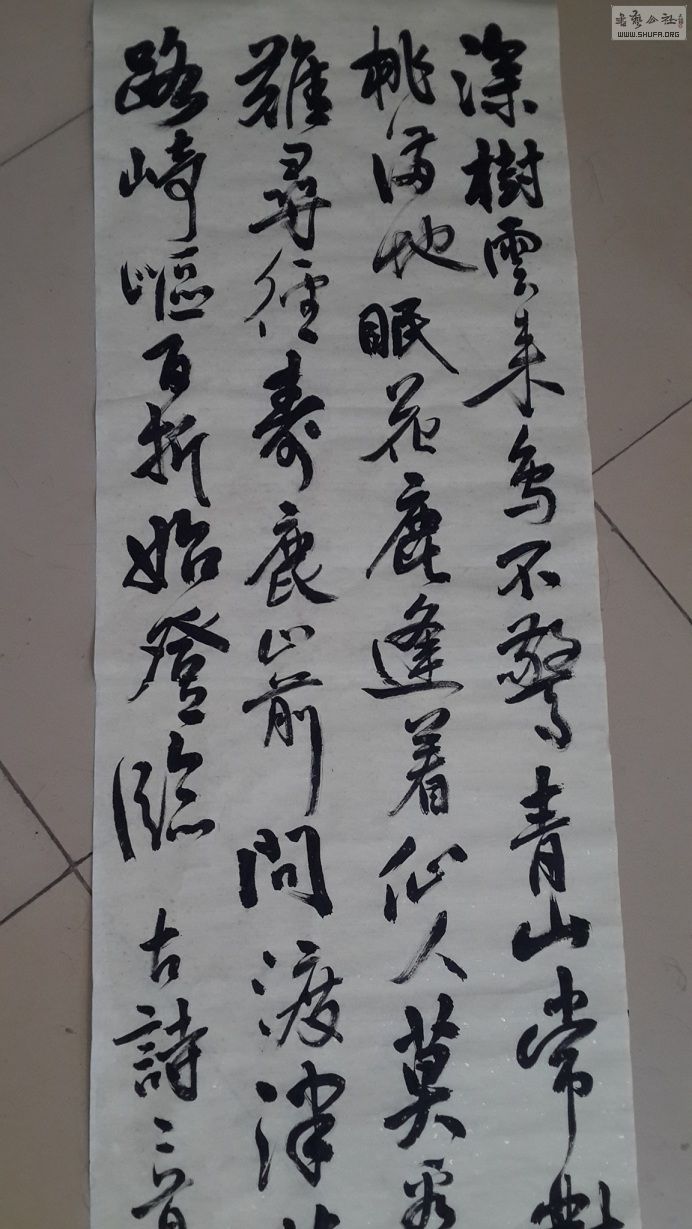 深樹雲来鳥不驚青山常對
桃满地眠花鹿逢着仙人莫看
難尋徑壽鹿山前問渡津
路崎嶇百折始登臨 古詩三首
書藝公社
WWW.SHUFA.ORG